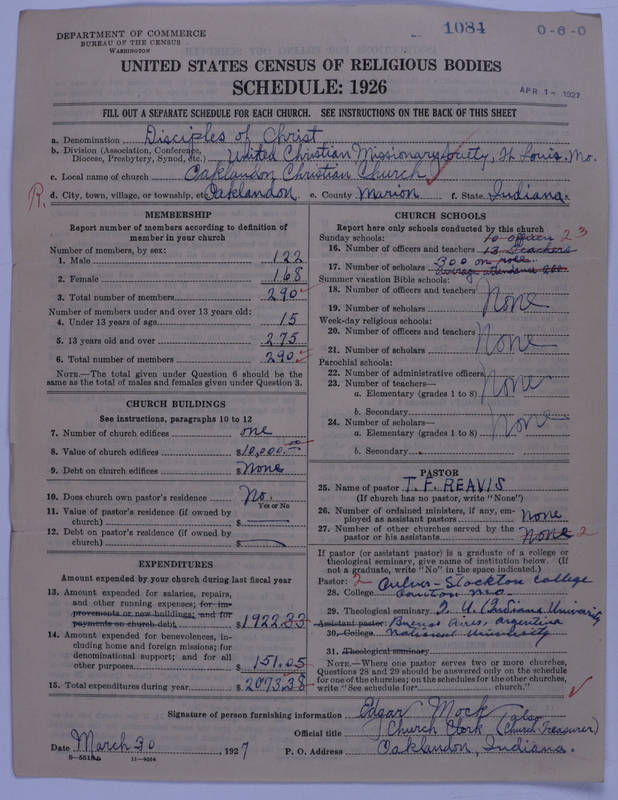 DEPARTMENT OF COMMERCE
BUREAU OF THE CENSUS
WASHINGTON
1084
0-6-0
UNITED STATES CENSUS OF RELIGIOUS BODIES
SCHEDULE: 1926
APR 1- 1927
FILL OUT A SEPARATE SCHEDULE FOR EACH CHURCH. SEE INSTRUCTIONS ON THE BACK OF THIS SHEET
a. Denomination Disciples of Christ
b. Division (Association, Conference, Diocese, Presbytery, Synod, etc.) United Christian Missionary Society, St Louis, Mo.
c. Local name of church Oaklandon Christian Church
R. d. City, town, village, or township, etc. Oaklandon e. County Marion f. State Indiana
MEMBERSHIP
Report number of members according to definition of
member in your church
Number of members, by sex:
1. Male 122
2. Female 168
3. Total number of members 290
Number of members under and over 13 years old:
4. Under 13 years of age 15
5. 13 years old and over 275
6. Total number of members 290
NOTE.—The total given under Question 6 should be
same as the total of males and females given under Question 3.
CHURCH BUILDINGS
See instructions, paragraphs 10 to 12
7. Number of church edifices one
8. Value of church edifices $10,000.—
9. Debt on church edifices $None
10. Does church own pastor's residence No.
Yes or No
11. Value of pastor's residence (if owned by
church) $
12. Debt on pastor's residence (if owned by
church) $
EXPENDITURES
Amount expended by your church during last fiscal year
13. Amount expended for salaries, repairs,
and other running expenses; for im-
provements or new buildings; and for
payments on church debt $1922.33
14. Amount expended for benevolences, in-
cluding home and foreign missions; for
denominational support; and for all
other purposes $151.05
15. Total expenditures during year $2073.38
CHURCH SCHOOLS
Report here only schools conducted by this church
Sunday schools: 10 officers 23
16. Number of officers and teachers 13 Teachers
300 on roll
17. Number of scholars average attendance 200
Summer vacation Bible schools:
18. Number of officers and teachers
None
19. Number of scholars
Week-day religious schools:
20. Number of officers and teachers
None
21. Number of scholars
Parochial schools:
22. Number of administrative officers
23. Number of teachers— None
a. Elementary (grades 1 to 8)
b. Secondary
24. Number of scholars— None
a. Elementary (grades 1 to 8)
b. Secondary
PASTOR
25. Name of pastor T. F. REAVIS
(If church has no pastor, write "None")
26. Number of ordained ministers, if any, em-
ployed as assistant pastors none
27. Number of other churches served by the
pastor or his assistants None 2
If pastor (or assistant pastor) is a graduate of a college or
theological seminary, give name of institution below. (If
not a graduate, write "No" in the space indicated.)
Pastor: 2 Culver-Stockton College
28. College Canton Mo.
29. Theological seminary I. U. (Indiana University
Assistant pastor: Buenos Aires, Argentina
30. College National University
31. Theological seminary
NOTE.—Where one pastor serves two or more churches,
Questions 28 and 29 should be answered only on the schedule
for one of the churches; on the schedules for the other churches,
write "See schedule for church."
Signature of person furnishing information Edgar Mock
Official title Church Clerk (also Church Treasurer)
Date March 30, 1927 P. O. Address Oaklandon, Indiana.
11—9264